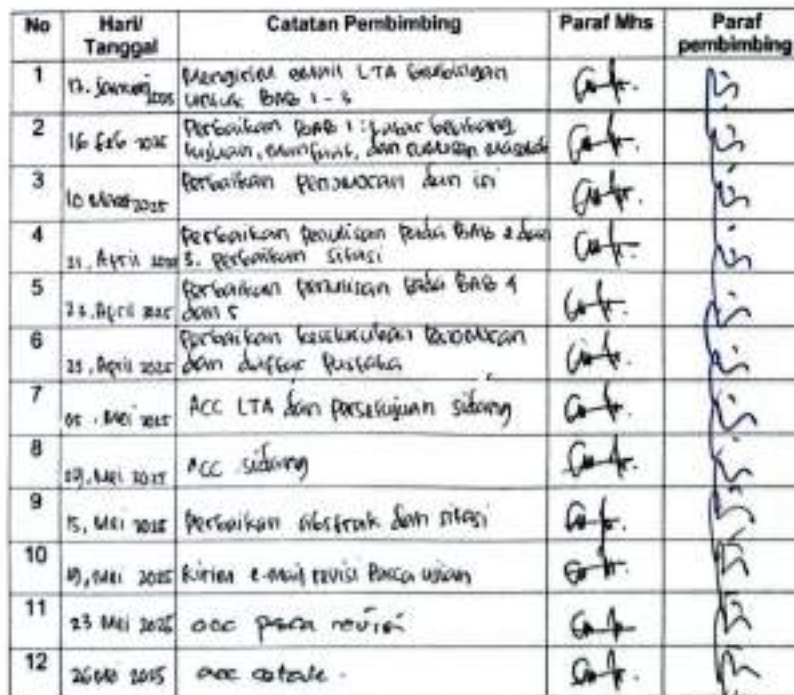 No Hari/ Tanggal Catatan Pembimbing Paraf Mhs Paraf pembimbing
1 17. Januari 2025 Mengirim email LTA bimbingan
untuk BAB 1 - 3
2 16 Feb 2025 Perbaikan BAB 1 : Latar belakang
tujuan, manfaat, dan rumusan masalah
3 10 Maret 2025 Perbaikan penomoran dan isi
4 21. April 2025 Perbaikan penulisan pada BAB 2 dan
3. perbaikan sitasi
5 23. April 2025 Perbaikan penulisan pada BAB 4
dan 5
6 25. April 2025 Perbaikan keseluruhan penomoran
dan daftar Pustaka
7 05. Mei 2025 ACC LTA dan persetujuan sidang
8 Mei 2025 ACC sidang
9 15. Mei 2025 Perbaikan abstrak dan sitasi
10 19. Mei 2025 Kirim e-mail revisi Pasca ujian
11 23 Mei 2025 acc pasca revisi
12 26 Mei 2025 acc cetak.